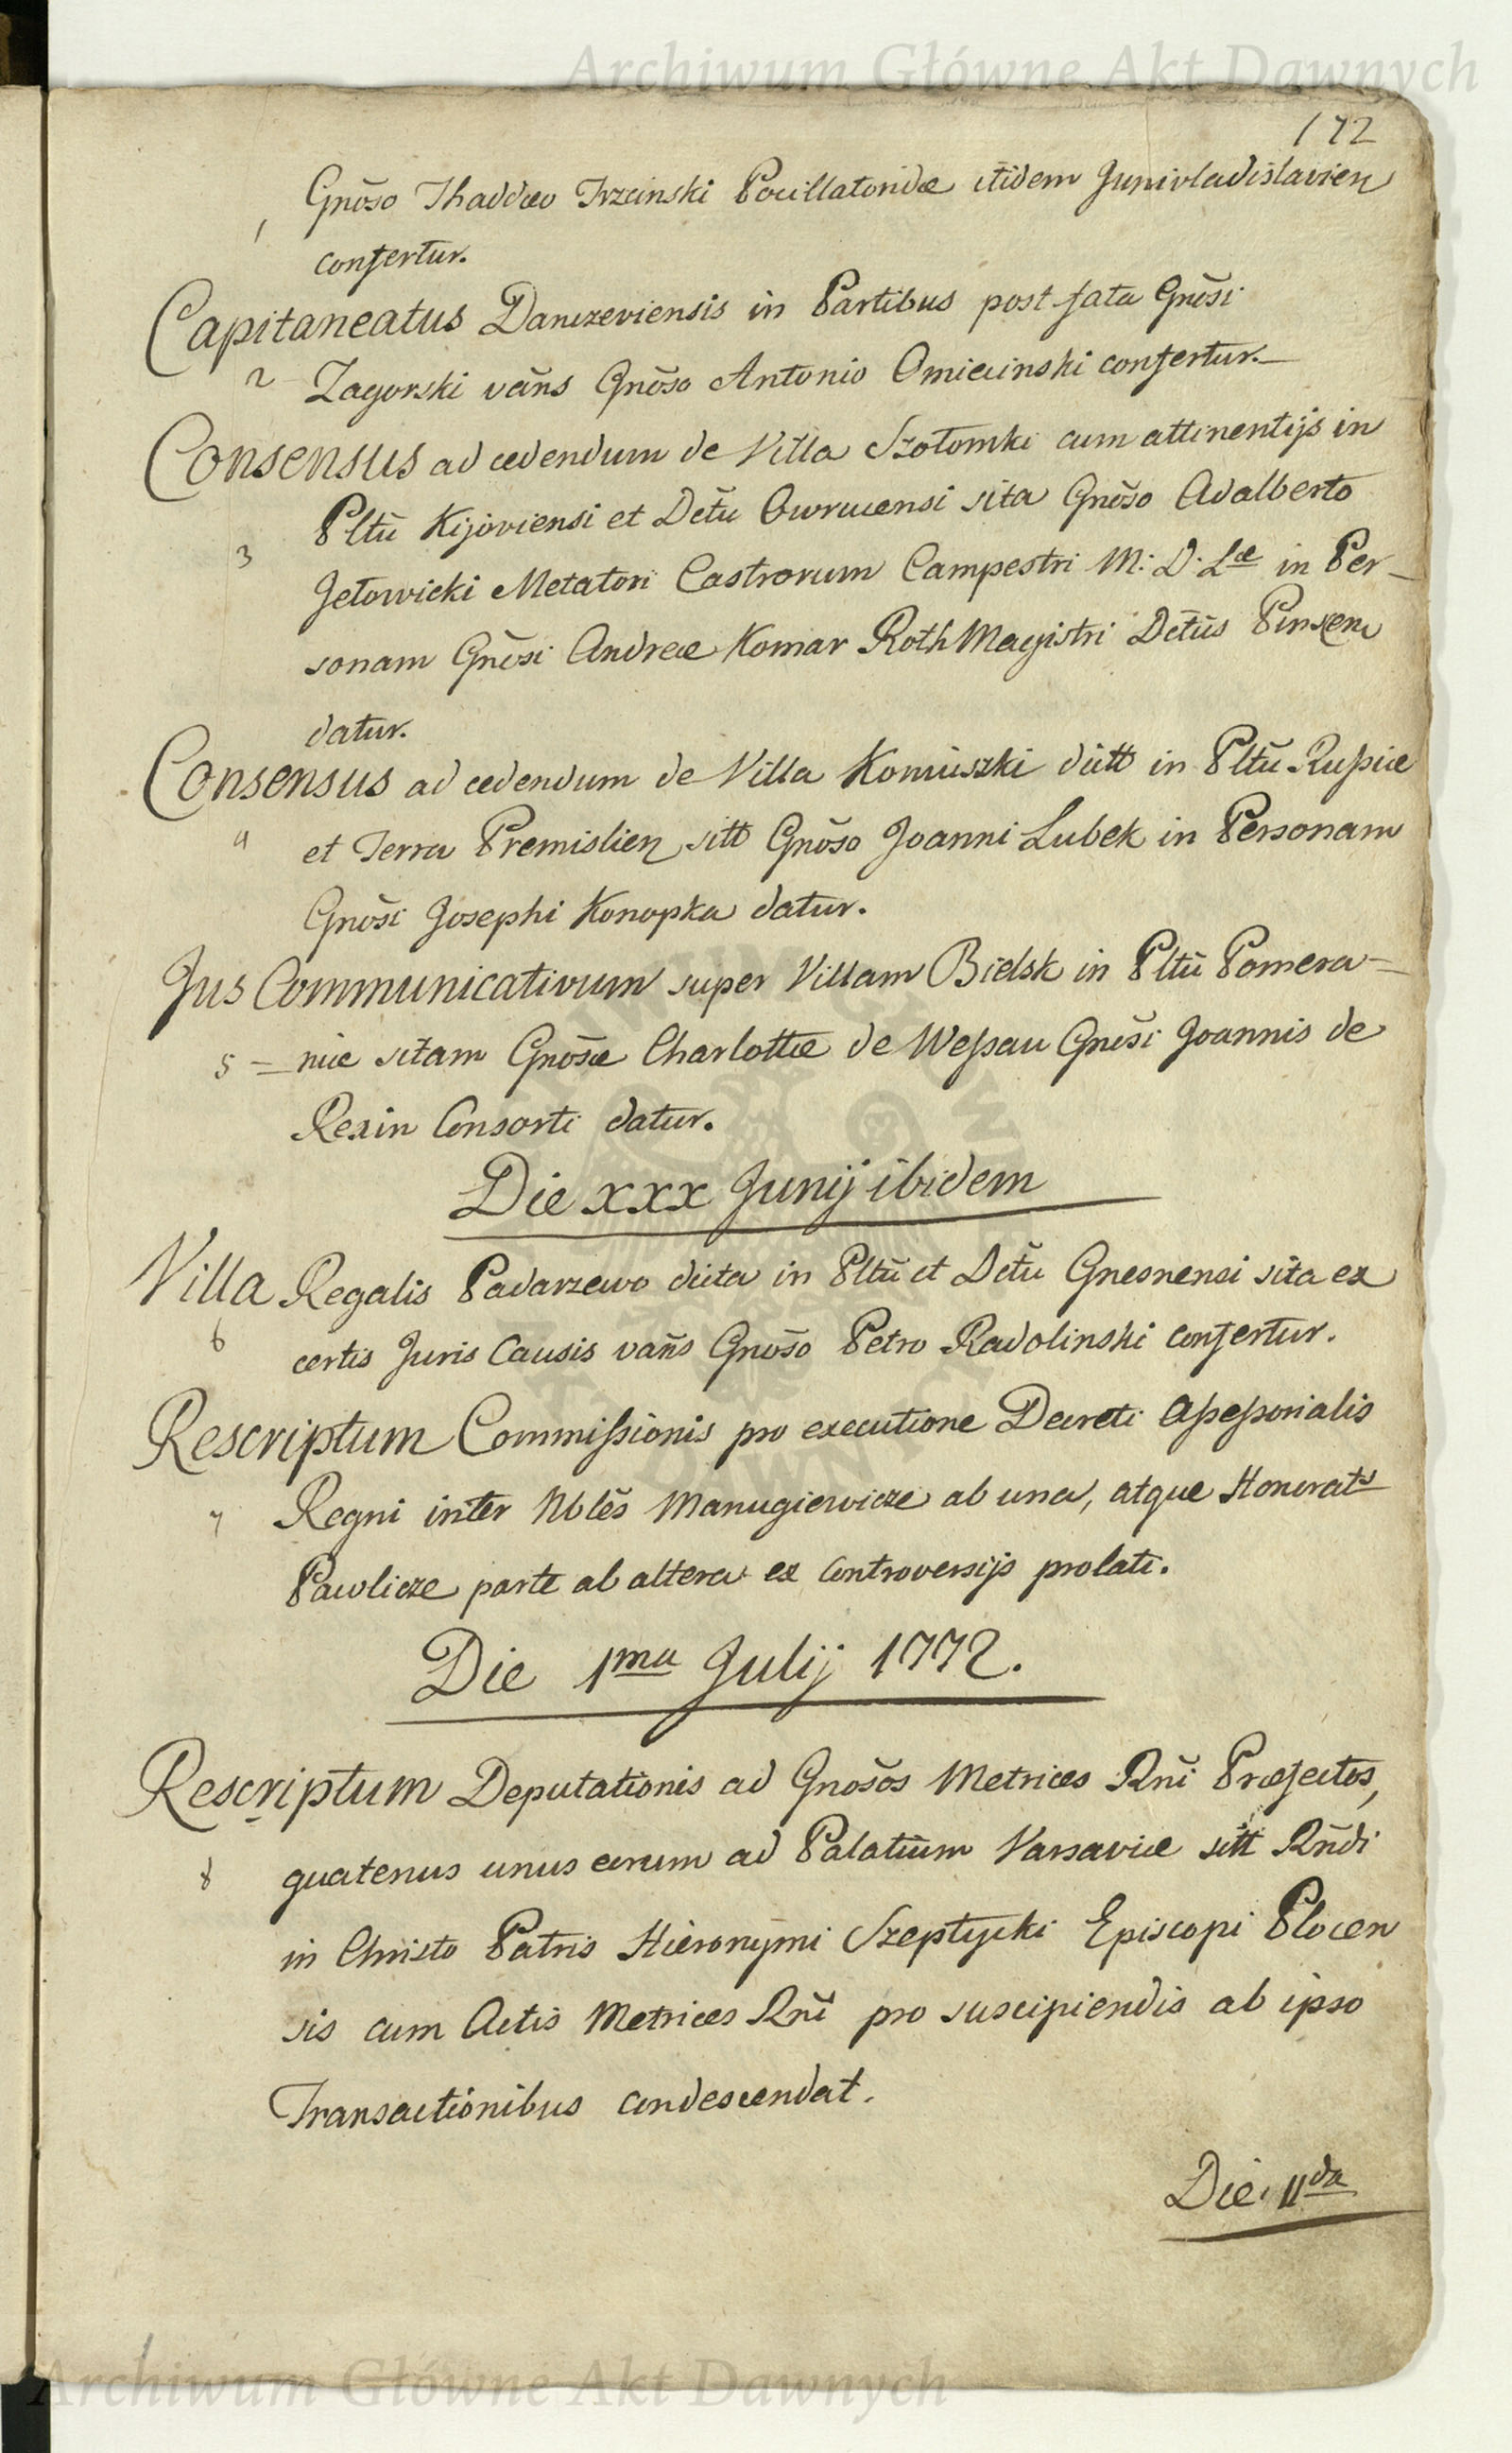 Archiwum Główne Akt Dawnych
172
Gnõso Thaddæo Trzcinski Pocillatoridæ itidem Junivladislavien
1
confertur.
Capitaneatus Danczeviensis in Partibus post fata Gnõsi
2 Zagorski vãns Gnõso Antonio Omiecinski confertur.
Consensus ad cedendum de Villa Szołomki cum attinentijs in
Pltũ Kijoviensi et Dctũ Owrucensi sita Gnõso Adalberto
3
Jełowicki Metatori Castrorum Campestri M: D: Læ in Per-
sonam Gnõsi Andreæ Komar RothMagistri Dctũs Pinscen
datur.
Consensus ad cedendum de Villa Komuszki dictt in Pltũ Rußiæ
4 et Terra Premislien sitt Gnõso Joanni Lubek in Personam
Gnõsi Josephi Konopka datur.
Jus Communicativum super Villam Bielsk in Pltũ Pomera=
5 = niæ sitam Gnõsæ Charlottæ de Weßau Gnõsi Joannis de
Rexin Consorti datur.
Die xxx Junij ibidem
Villa Regalis Padarzewo dicta in Pltũ et Dctũ Gnesnensi sita ex
6 certis Juris Causis vãns Gnõso Petro Radolinski confertur.
Rescriptum Commißionis pro executione Decreti Aßeßorialis
7 Regni inter Nblẽs Manugiewicze ab una, atque Honorats
Pawlicze parte ab altera ex Controversijs prolati.
Die 1ma Julij 1772.
Rescriptum Deputationis ad Gnõsos Metrices Rnĩ Præfectos,
8 quatenus unus eorum ad Palatium Varsaviæ sitt Rñdi
in Christo Patris Hieronymi Szeptycki Episcopi Plocen
sis cum Actis Metrices Rnĩ pro suscipiendis ab ipso
Transactionibus condescendat.
Die 11da
Archiwum Główne Akt Dawnych